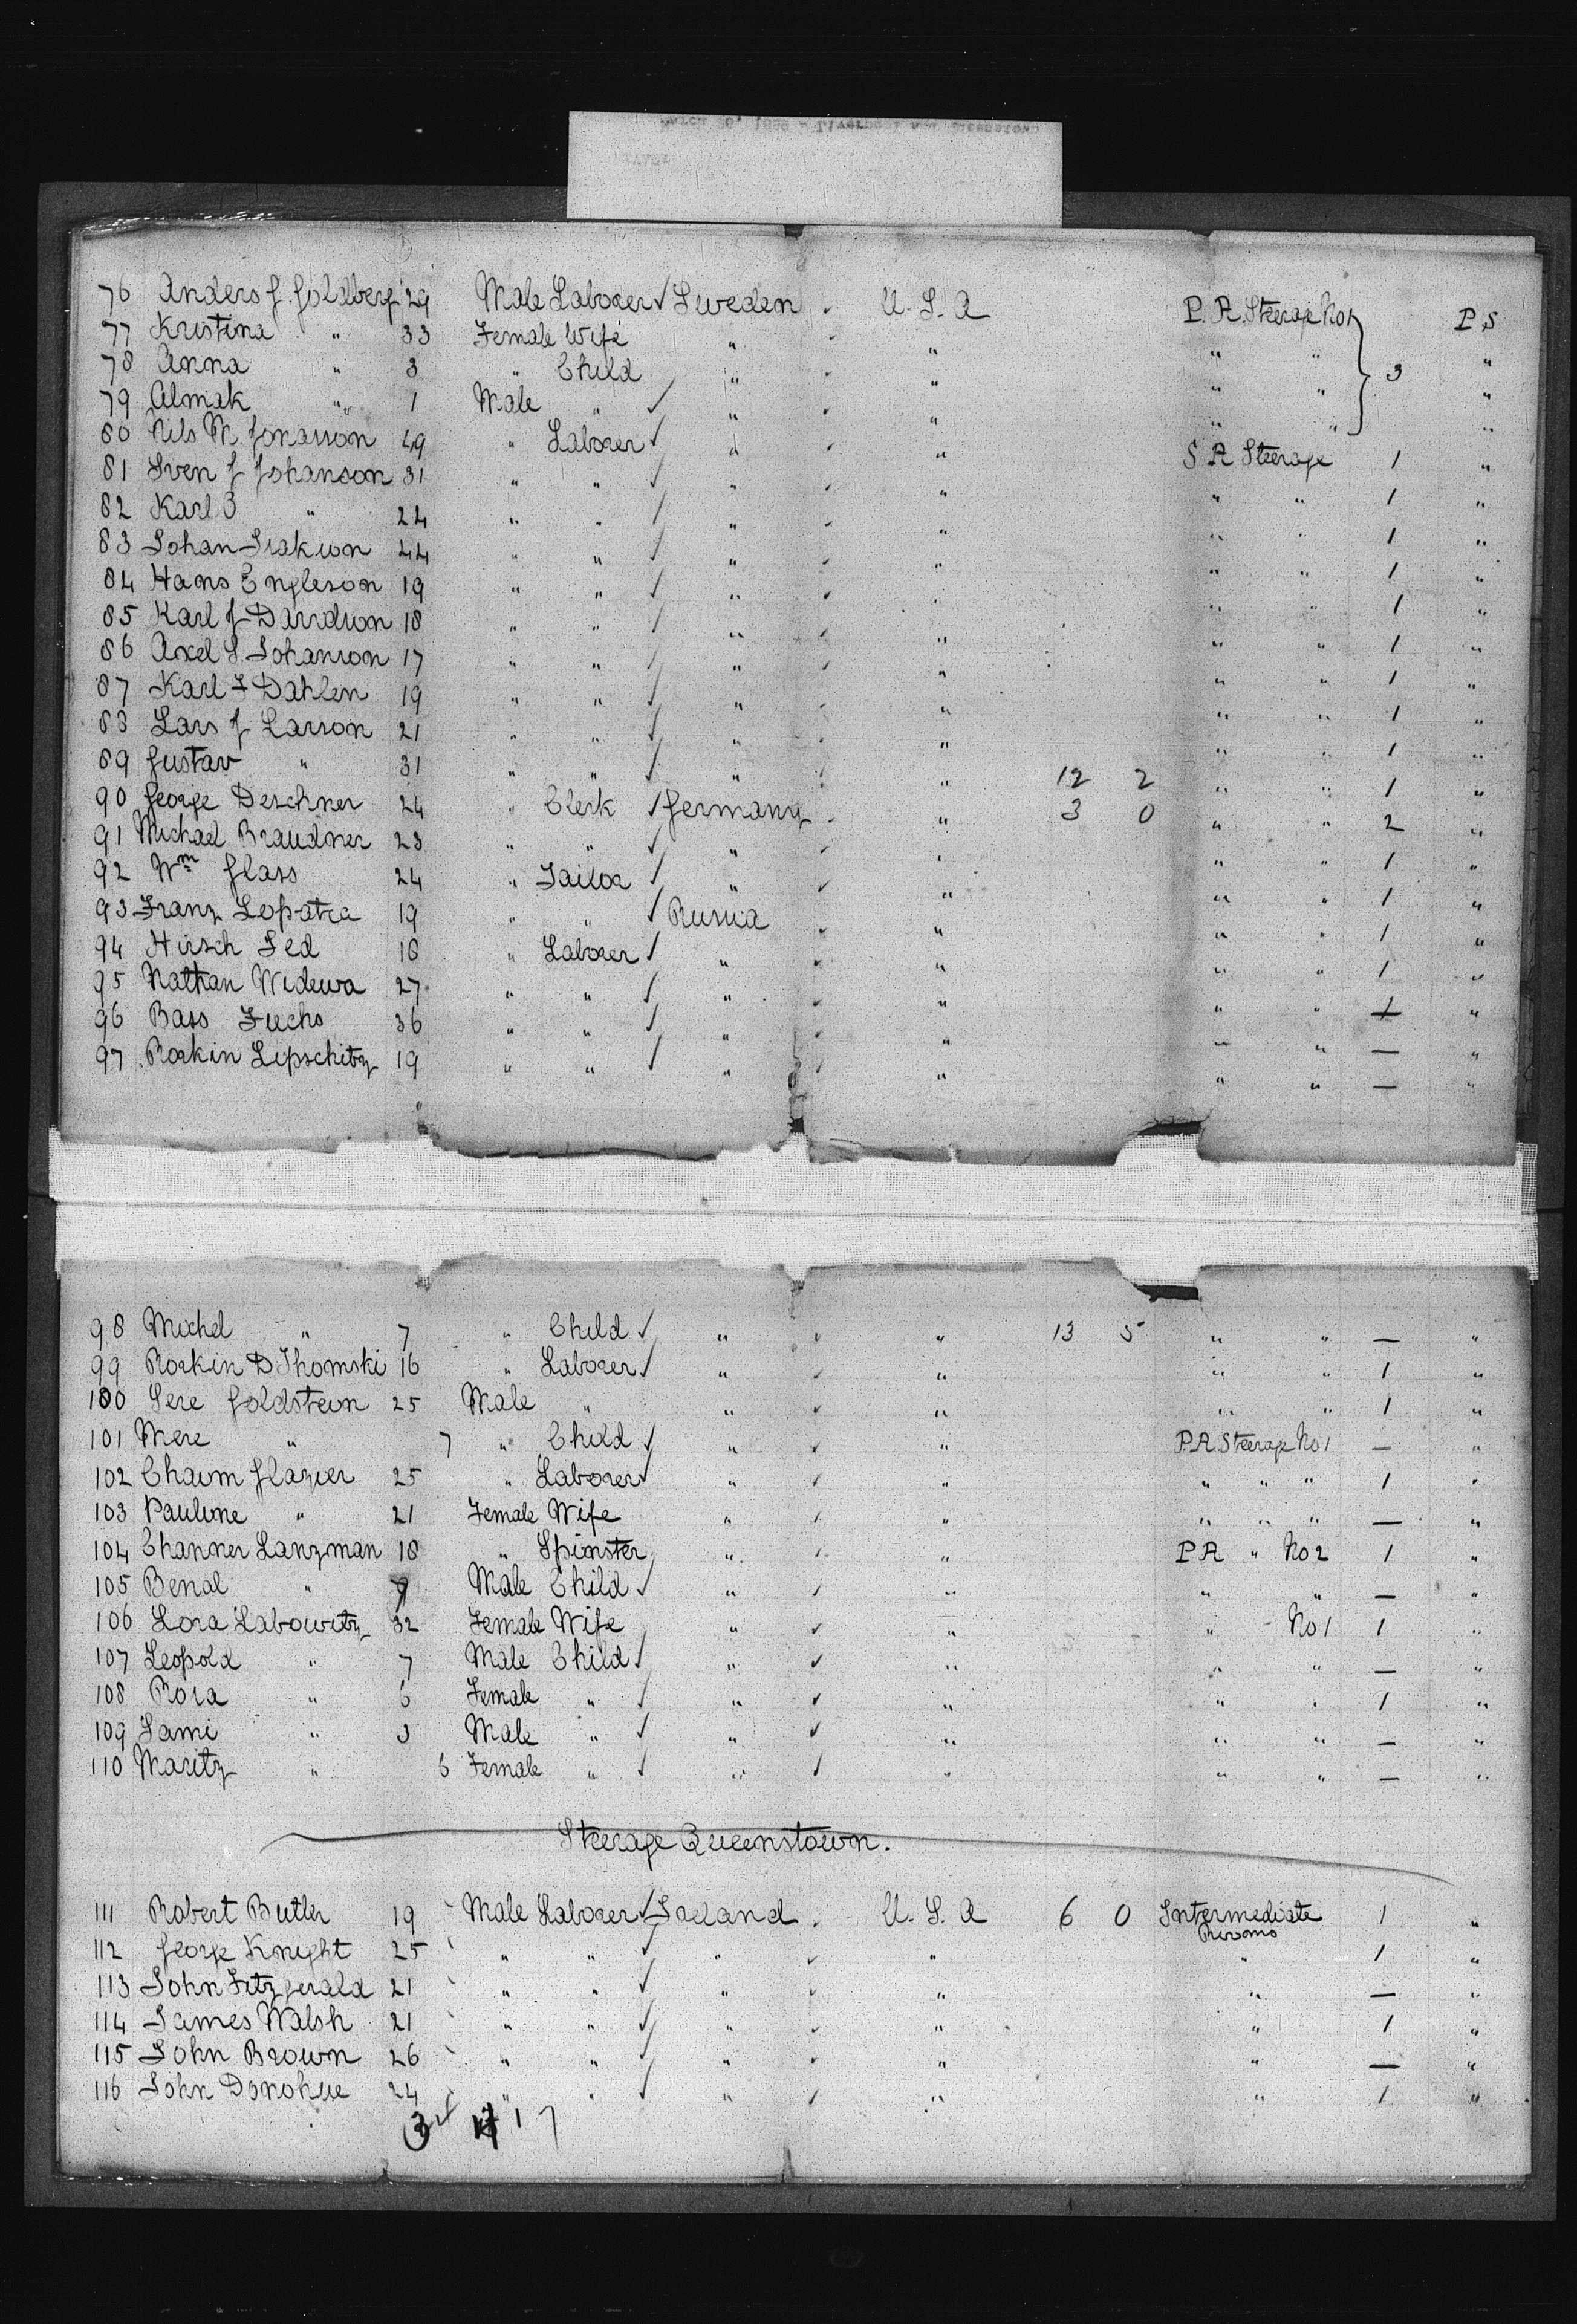 76 Anders J. Goldberg 29 Male Laborer ✓ Sweden U.S.A P.A. Steerage No 1 P S
77 Kristina " 33 Female Wife " " " " "
78 Anna " 3 " Child " " " " 3 "
79 Almak " 1 Male " ✓ " " " " "
80 Nils M. Jonasson 49 " Laborer ✓ " " S A Steerage 1 "
81 Sven J Johanson 31 " " ✓ " " " " 1 "
82 Karl " 24 " " ✓ " " " " 1 "
83 Johan Isakson 44 " " ✓ " " " " 1 "
84 Hans Engleson 19 " " ✓ " " " " 1 "
85 Karl J Davidson 18 " " ✓ " " " " 1 "
86 Axel S. Johanson 17 " " ✓ " " " " 1 "
87 Karl F Dahlen 19 " " ✓ " " " " 1 "
88 Lars J Larson 21 " " ✓ " " " " 1 "
89 Gustav " 31 " " ✓ " " 12 2 " " 1 "
90 George Deschner 24 " Clerk ✓ Germany " 3 0 " " 2 "
91 Michael Braudner 23 " " ✓ " " " " 1 "
92 Wm Glass 24 " Tailor ✓ " " " " 1 "
93 Franz Lopatra 19 " " ✓ Russia " " " 1 "
94 Hirsch Led 18 " Laborer ✓ " " " " 1 "
95 Nathan Widewa 27 " " ✓ " " " " 1 "
96 Bass Fuchs 36 " " ✓ " " " " — "
97 Roskin Lipschitz 19 " " ✓ " " " " — "
98 Michel " 7 " Child ✓ " " 13 5 " " — "
99 Roskin D Thomski 16 " Laborer ✓ " " " " 1 "
100 Sere Goldstein 25 Male " " " " " 1 "
101 Mere " 7 " Child ✓ " " P.A Steerage No 1 — "
102 Chaim Glazier 25 " Laborer ✓ " " " " " 1 "
103 Pauline " 21 Female Wife " " " " " — "
104 Channer Lanzman 18 " Spinster " " P A " No 2 1 "
105 Benal " 7 Male Child ✓ " " " " — "
106 Lora Labowitz 32 Female Wife " " " No 1 1 "
107 Leopold " 7 Male Child ✓ " " " " — "
108 Rosa " 6 Female " ✓ " " " " 1 "
109 Sami " 3 Male " ✓ " " " " — "
110 Maritz " 6 Female " ✓ " " " " — "
Steerage Queenstown.
111 Robert Butler 19 Male Laborer ✓ Ireland U.S.A 6 0 Intermediate Rooms 1 "
112 George Knight 25 " " ✓ " " " 1 "
113 John Fitzgerald 21 " " ✓ " " " — "
114 James Walsh 21 " " ✓ " " " 1 "
115 John Brown 26 " " ✓ " " " — "
116 John Donohue 24 " " ✓ " " " 1 "
17